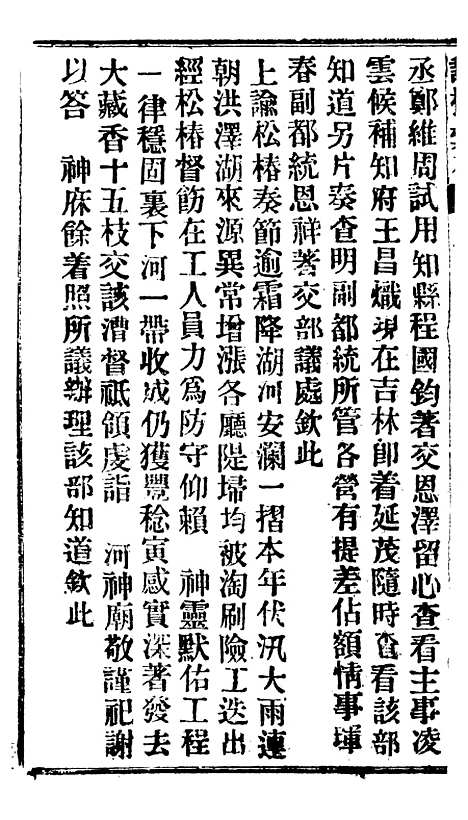 丞鄭維周試用知縣程國鈞著交恩澤留心查看主事凌
雲候補知府王昌熾現在吉林卽着延茂隨時查看該部
知道另片奏查明副都統所管各營有提差佔額情事琿
春副都統恩祥著交部議處欽此
上諭松椿奏節逾霜降湖河安瀾一摺本年伏汛大雨連
朝洪澤湖來源異常增漲各廳隄埽均被淘刷險工迭出
經松椿督飭在工人員力爲防守仰賴　神靈默佑工程
一律穩固裏下河一帶收成仍獲豐稔寅感實深著發去
大藏香十五枝交該漕督祇領虔詣　河神廟敬謹祀謝
以答　神庥餘着照所議辦理該部知道欽此